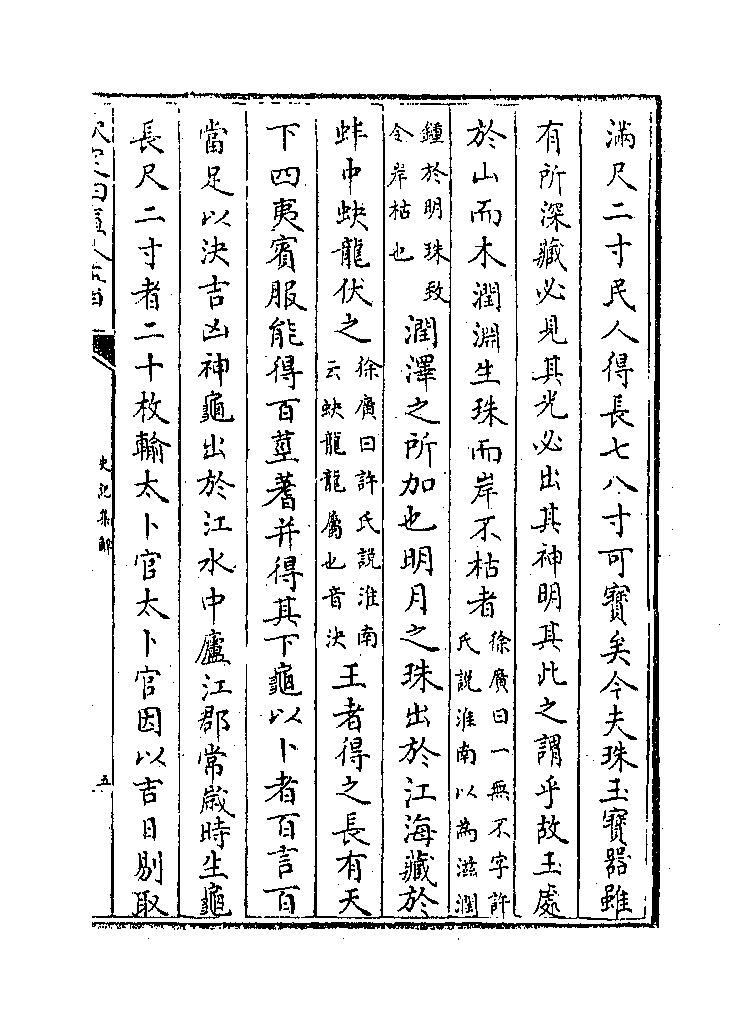 滿尺二寸民人得長七八寸可寶矣今夫珠玉寶器雖
有所深藏必見其光必出其神明其此之謂乎故玉處
於山而木潤淵生珠而岸不枯者徐廣曰一無不字許氏說淮南以為滋潤
鍾於明珠致令岸枯也潤澤之所加也明月之珠出於江海藏於
蚌中蚗龍伏之徐廣曰許氏說淮南云蚗龍龍屬也音決王者得之長有天
下四夷賓服能得百莖蓍并得其下龜以卜者百言百
當足以決吉凶神龜出於江水中廬江郡常歲時生龜
長尺二寸者二十枚輸太卜官太卜官因以吉日剔取
史記集解
五